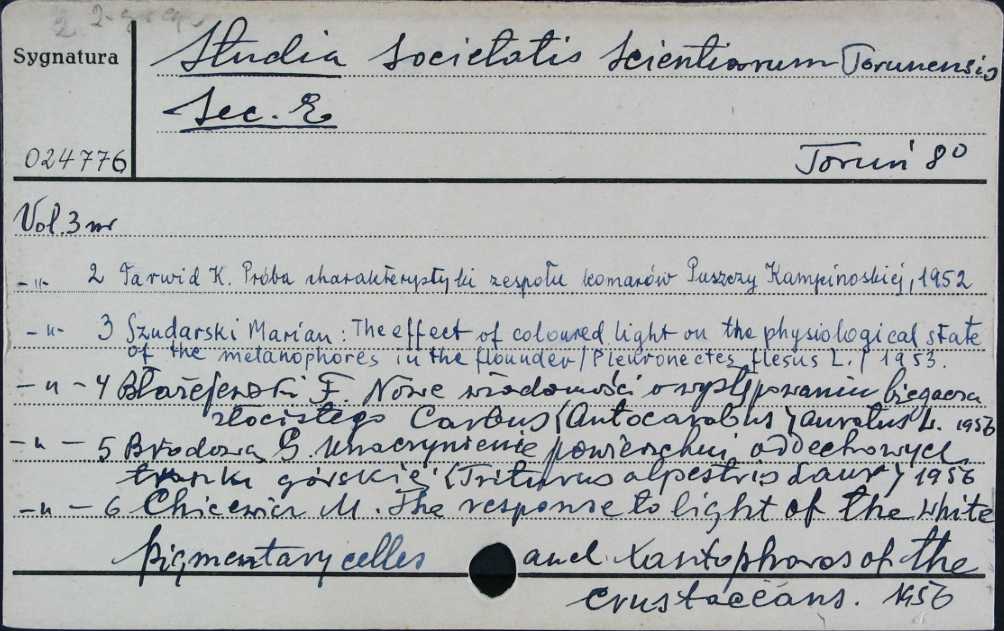 Sygnatura
Studia Societatis Scientiarum Torunensis
Sec. E
024776
Toruń 8°
Vol. 3 nr
-"- 2 Tarwid K. Próba charakterystyki zespołu komarów Puszczy Kampinoskiej, 1952
-"- 3 Szudarski Marian: The effect of coloured light on the physiological state
of the metanophores in the flounder /Pleuronectes flesus L./ 1953.
-"- 4 Błażejewski F. Nowe wiadomości o występowaniu biegacza
złocistego Carbus (Autocarabus) auratus L. 1956
-"- 5 Brodowa G. Unaczynienie powierzchni oddechowych
traszki górskiej (Triturus alpestris Laur) 1956
-"- 6 Chicewicz M. The response to light of the White
pigmentary celles and Xantophoros of the
crustaceans. 1956